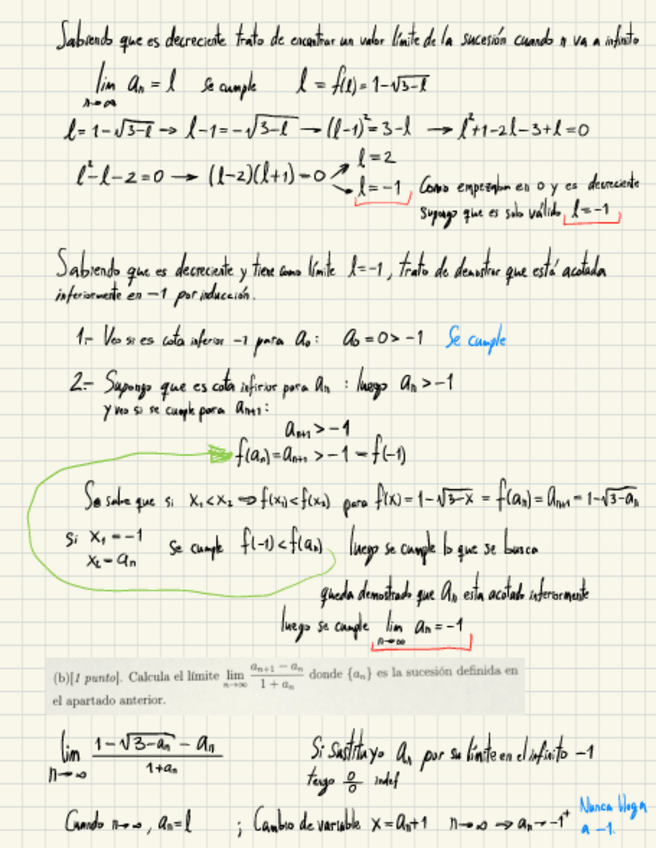 Sabiendo que es decreciente trato de encontrar un valor límite de la sucesión cuando n va a infinito
lim n→∞ aₙ = l se cumple l = f(l) = 1-√(3-l)
l = 1-√(3-l) → l-1 = -√(3-l) → (l-1)² = 3-l → l²+1-2l-3+l = 0
l²-l-2 = 0 → (l-2)(l+1) = 0 ↗ l = 2
↘ l = -1 Como empezaban en 0 y es decreciente
supongo que es solo válido l = -1
Sabiendo que es decreciente y tiene como límite l = -1, trato de demostrar que está acotada
inferiormente en -1 por inducción.
1.- Veo si es cota inferior -1 para a₀: a₀ = 0 > -1 Se cumple
2.- Supongo que es cota inferior para aₙ : luego aₙ > -1
y veo si se cumple para aₙ₊₁:
aₙ₊₁ > -1
f(aₙ) = aₙ₊₁ > -1 = f(-1)
Se sabe que si x₁ < x₂ ⇒ f(x₁) < f(x₂) para f(x) = 1-√(3-x) = f(aₙ) = aₙ₊₁ = 1-√(3-aₙ)
Si x₁ = -1
x₂ = aₙ se cumple f(-1) < f(aₙ) luego se cumple lo que se busca
queda demostrado que aₙ esta acotado inferiormente
luego se cumple lim n→∞ aₙ = -1
(b)[1 punto]. Calcula el límite lim n→∞ (aₙ₊₁ - aₙ)/(1 + aₙ) donde {aₙ} es la sucesión definida en
el apartado anterior.
lim n→∞ (1-√(3-aₙ) - aₙ)/(1+aₙ) Si sustituyo aₙ por su límite en el infinito -1
tengo 0/0 indef
Cuando n→∞, aₙ = l ; Cambio de variable x = aₙ+1 n→∞ ⇒ aₙ → -1⁺ Nunca llega
a -1.